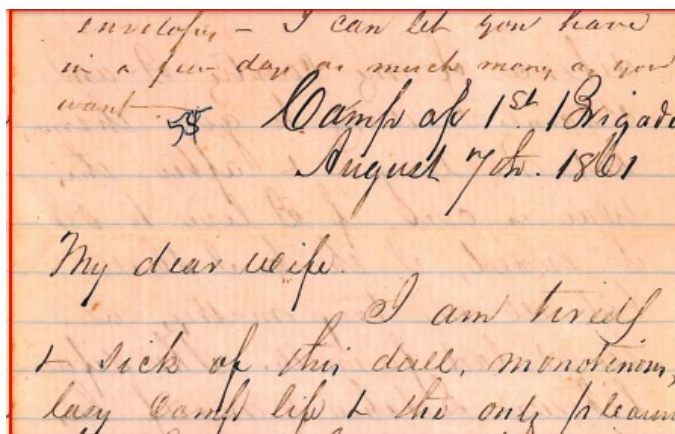 envelopes - I can let you have
in a few days as much money as you
want.
58 Camp of 1st Brigade
August 7th. 1861
My dear wife.
I am tired
& sick of this dull, monotinous,
lazy Camp life & the only pleasure